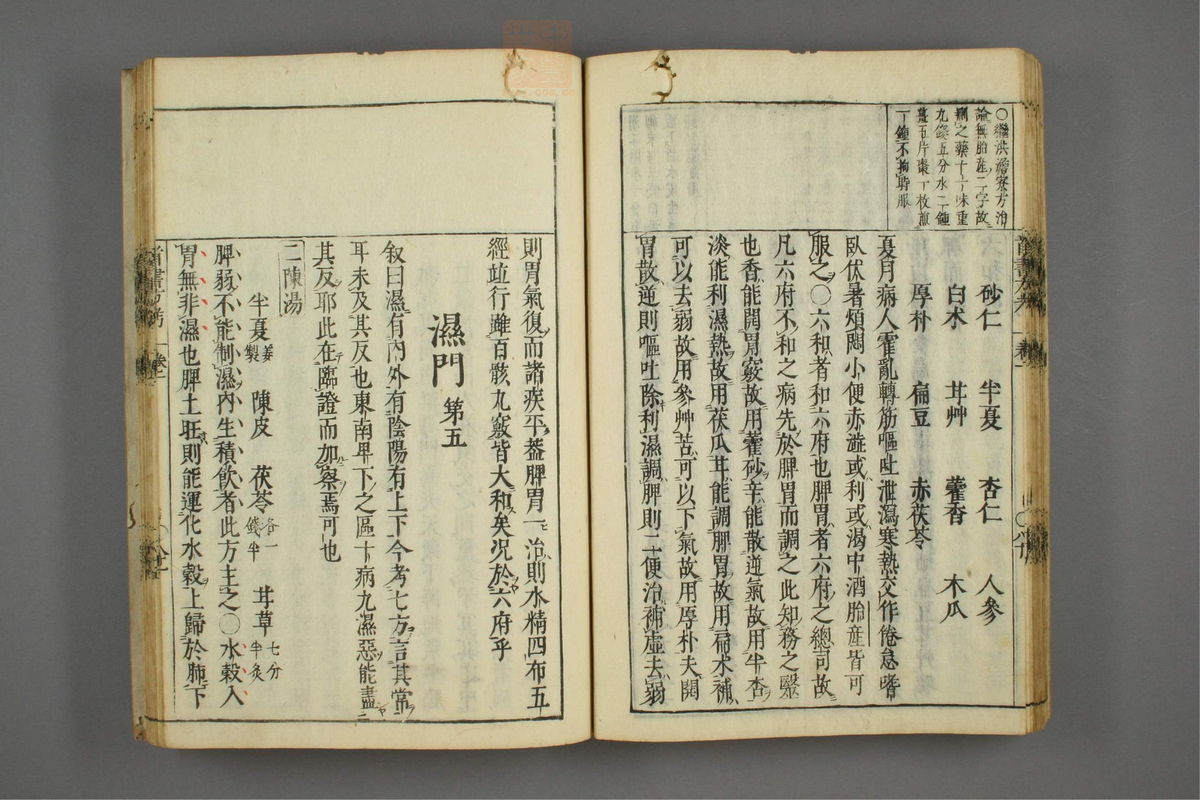 ○繼洪澹寮方治
論無胎産二字故
劑之藥十一味重
九錢五分水二鍾
薑五片棗一枚煎
一鍾不拘時服
砂仁 半夏 杏仁 人參
白朮 甘艸 藿香 木瓜
厚朴 扁豆 赤茯苓
夏月病人霍亂轉筋嘔吐泄瀉寒熱交作倦怠嗜
臥伏暑煩悶小便赤澁或利或渴中酒胎産皆可
服之○六和者和六府也脾胃者六府之總司故
凡六府不和之病先於脾胃而調之此知務之醫
也香能開胃竅故用藿砂辛能散逆氣故用半杏
淡能利濕熱故用茯瓜甘能調脾胃故用扁朮補
可以去弱故用參艸苦可以下氣故用厚朴夫開
胃散逆則嘔吐除利濕調脾則二便治補虛去弱
則胃氣復而諸疾平蓋脾胃一治則水精四布五
經竝行雖百骸九竅皆大和矣況於六府乎
濕門 第五
叙曰濕有內外有陰陽有上下今考七方言其常
耳未及其反也東南卑下之區十病九濕惡能盡
其反耶此在臨證而加察焉可也
二陳湯
半夏 姜製 陳皮 茯苓 各一錢半 甘草 七分半炙
脾弱不能制濕內生積飲者此方主之○水穀入
胃無非濕也脾土旺則能運化水穀上歸於肺下